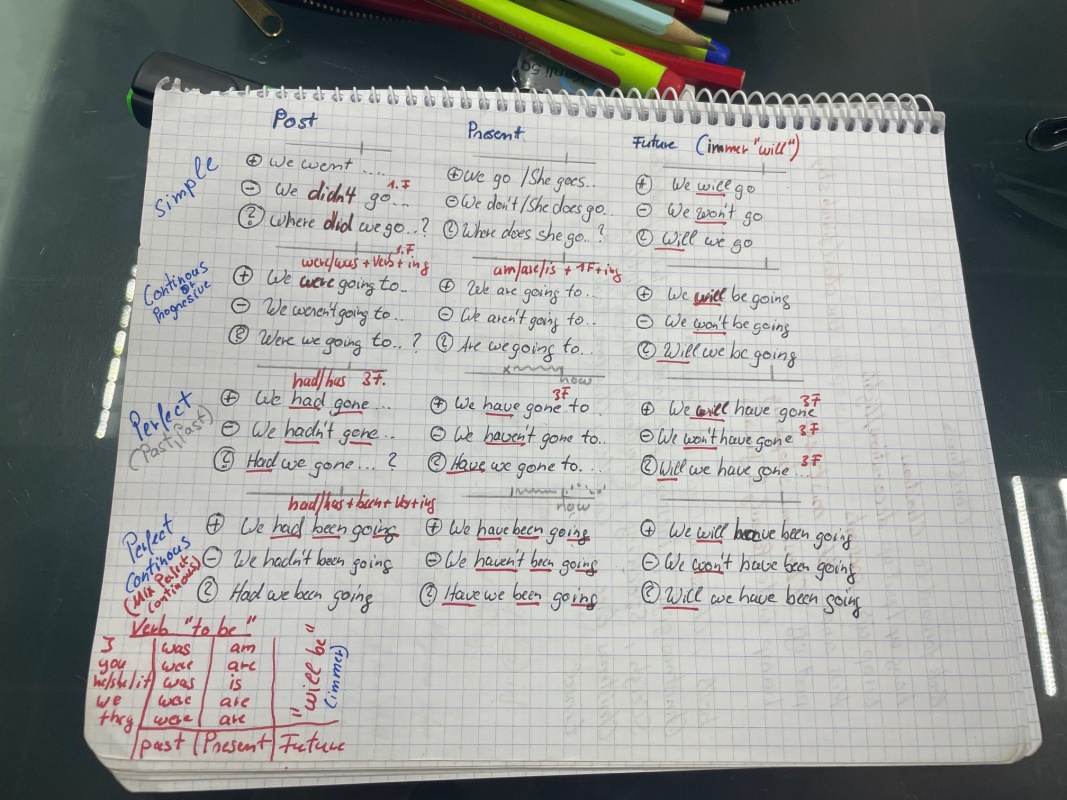 Past Present Future (immer "will")
Simple
⊕ We went .... ⊕ We go / She goes.. ⊕ We will go
1.F
⊖ We didn't go... ⊖ We don't / She does go.. ⊖ We won't go
? Where did we go..? ? Where does she go..? ? Will we go
Continous or Progresive
1.F
were/was + Verb + ing am/are/is + 1F + ing
⊕ We were going to.. ⊕ We are going to... ⊕ We will be going
⊖ We weren't going to.. ⊖ We aren't going to.. ⊖ We won't be going
? Were we going to..? ? Are we going to... ? Will we be going
now
Perfect
(Past, Past)
had/has 3F.
3F 3F
⊕ We had gone... ⊕ We have gone to.. ⊕ We will have gone
3F
⊖ We hadn't gone.. ⊖ We haven't gone to.. ⊖ We won't have gone
3F
? Had we gone...? ? Have we gone to.... ? Will we have gone...
now
had/has + been + Ver + ing
Perfect
Continous
(Mix Pefect
Continous)
⊕ We had been going ⊕ We have been going ⊕ We will have been going
⊖ We hadn't been going ⊖ We haven't been going ⊖ We won't have been going
? Had we been going ? Have we been going ? Will we have been going
Verb "to be"
I was am
you were are
he/she/it was is
we were are
they were are
"will be"
(immer)
past Present Future